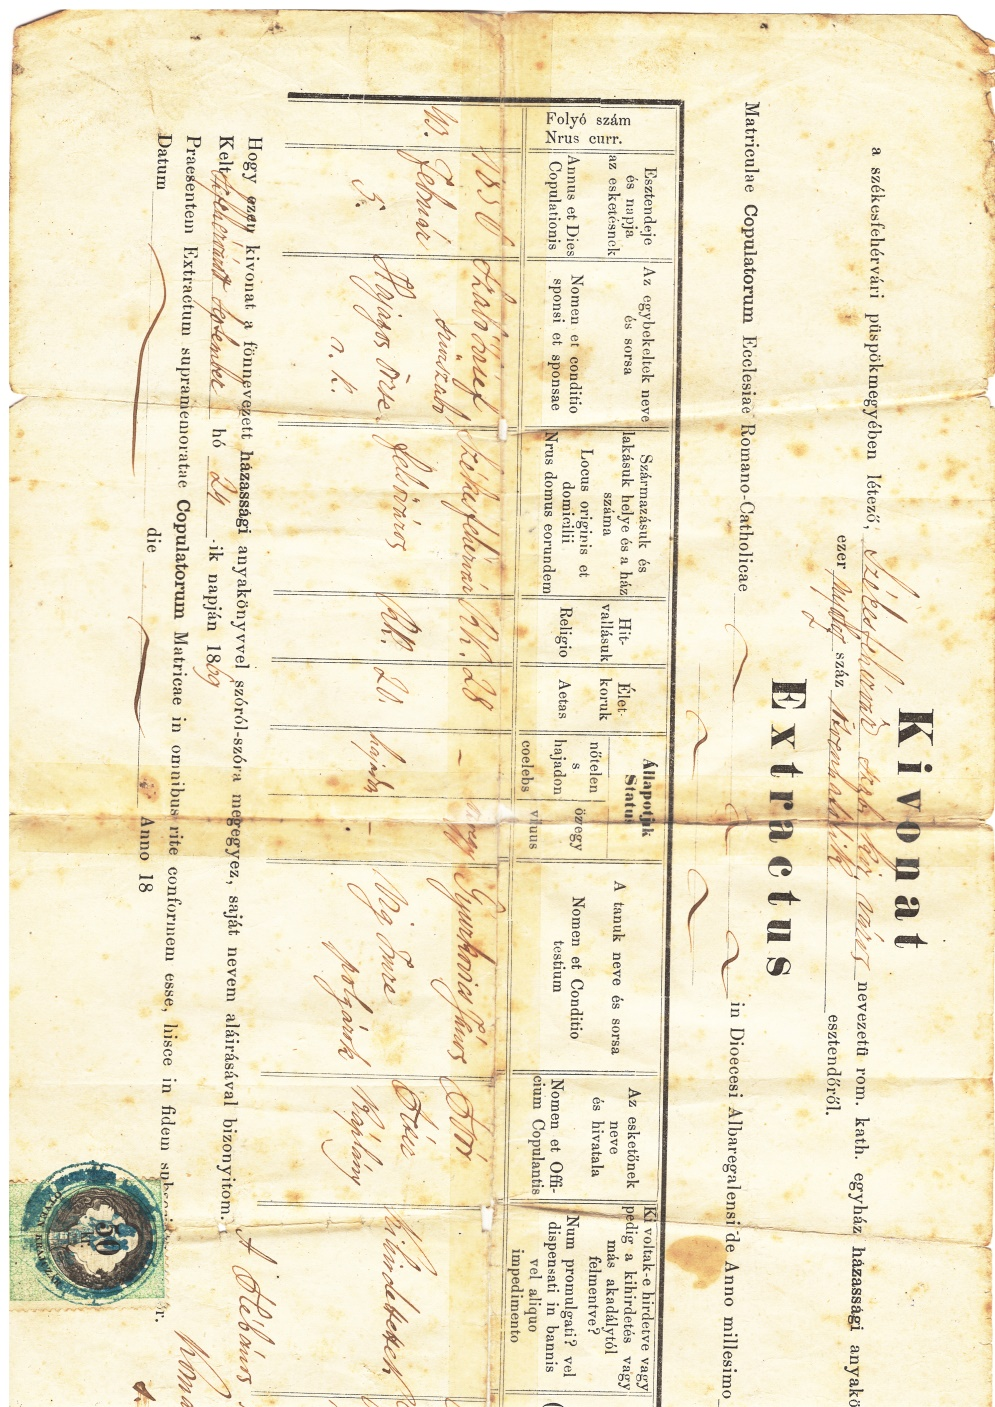 Kivonat
a székesfehérvári püspökmegyében létező, Székesfehérvár szab. kir. város nevezetü rom. kath. egyház házassági anyakö
ezer nyolcz száz ötvenedik esztendőről.
Extractus
Matriculae Copulatorum Ecclesiae Romano-Catholicae
in Dioecesi Albaregalensi de Anno millesimo
Folyó szám
Nrus curr.
Esztendeje
és napja
az esketésnek
Annus et Dies
Copulationis
Az egybekeltek neve
és sorsa
Nomen et conditio
sponsi et sponsae
Származásuk és
lakásuk helye és a ház
száma
Locus originis et
domicilii
Nrus domus eorundem
Hit-
vallásuk
Religio
Élet-
koruk
Aetas
Állapotjuk
Status
nőtelen
s
hajadon
coelebs
özegy
viuus
A tanuk neve és sorsa
Nomen et Conditio
testium
Az esketőnek
neve
és hivatala
Nomen et Offi-
cium Copulantis
Ki voltak-e hirdetve vagy
pedig a kihirdetés vagy
más akadálytól
felmentve?
Num promulgati? vel
dispensati in bannis
vel aliquo
impedimento
1850
Február
5.
Szabó József
szürszabó
Székesfehérvár
Felsőváros
r. k.
Rk. 28
Rk. 20.
hajadon
özvegy
Vig Imre
polgárok
Káplány
Kihirdettek
Hogy ezen kivonat a fönnevezett házassági anyakönyvvel szóról-szóra megegyez, saját nevem aláirásával bizonyitom.
Kelt Fehérvárt september hó 24 -ik napján 1869
Praesentem Extractum supramemoratae Copulatorum Matricae in omnibus rite conformem esse, hisce in fidem
Datum die Anno 18
50